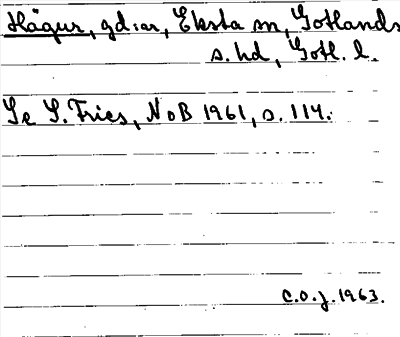 Hägur, gd:ar, Eksta sn, Gotlands
s. hd, Gotl. l.
Se S. Fries, NoB 1961, s. 114.
C.O.J. 1963.